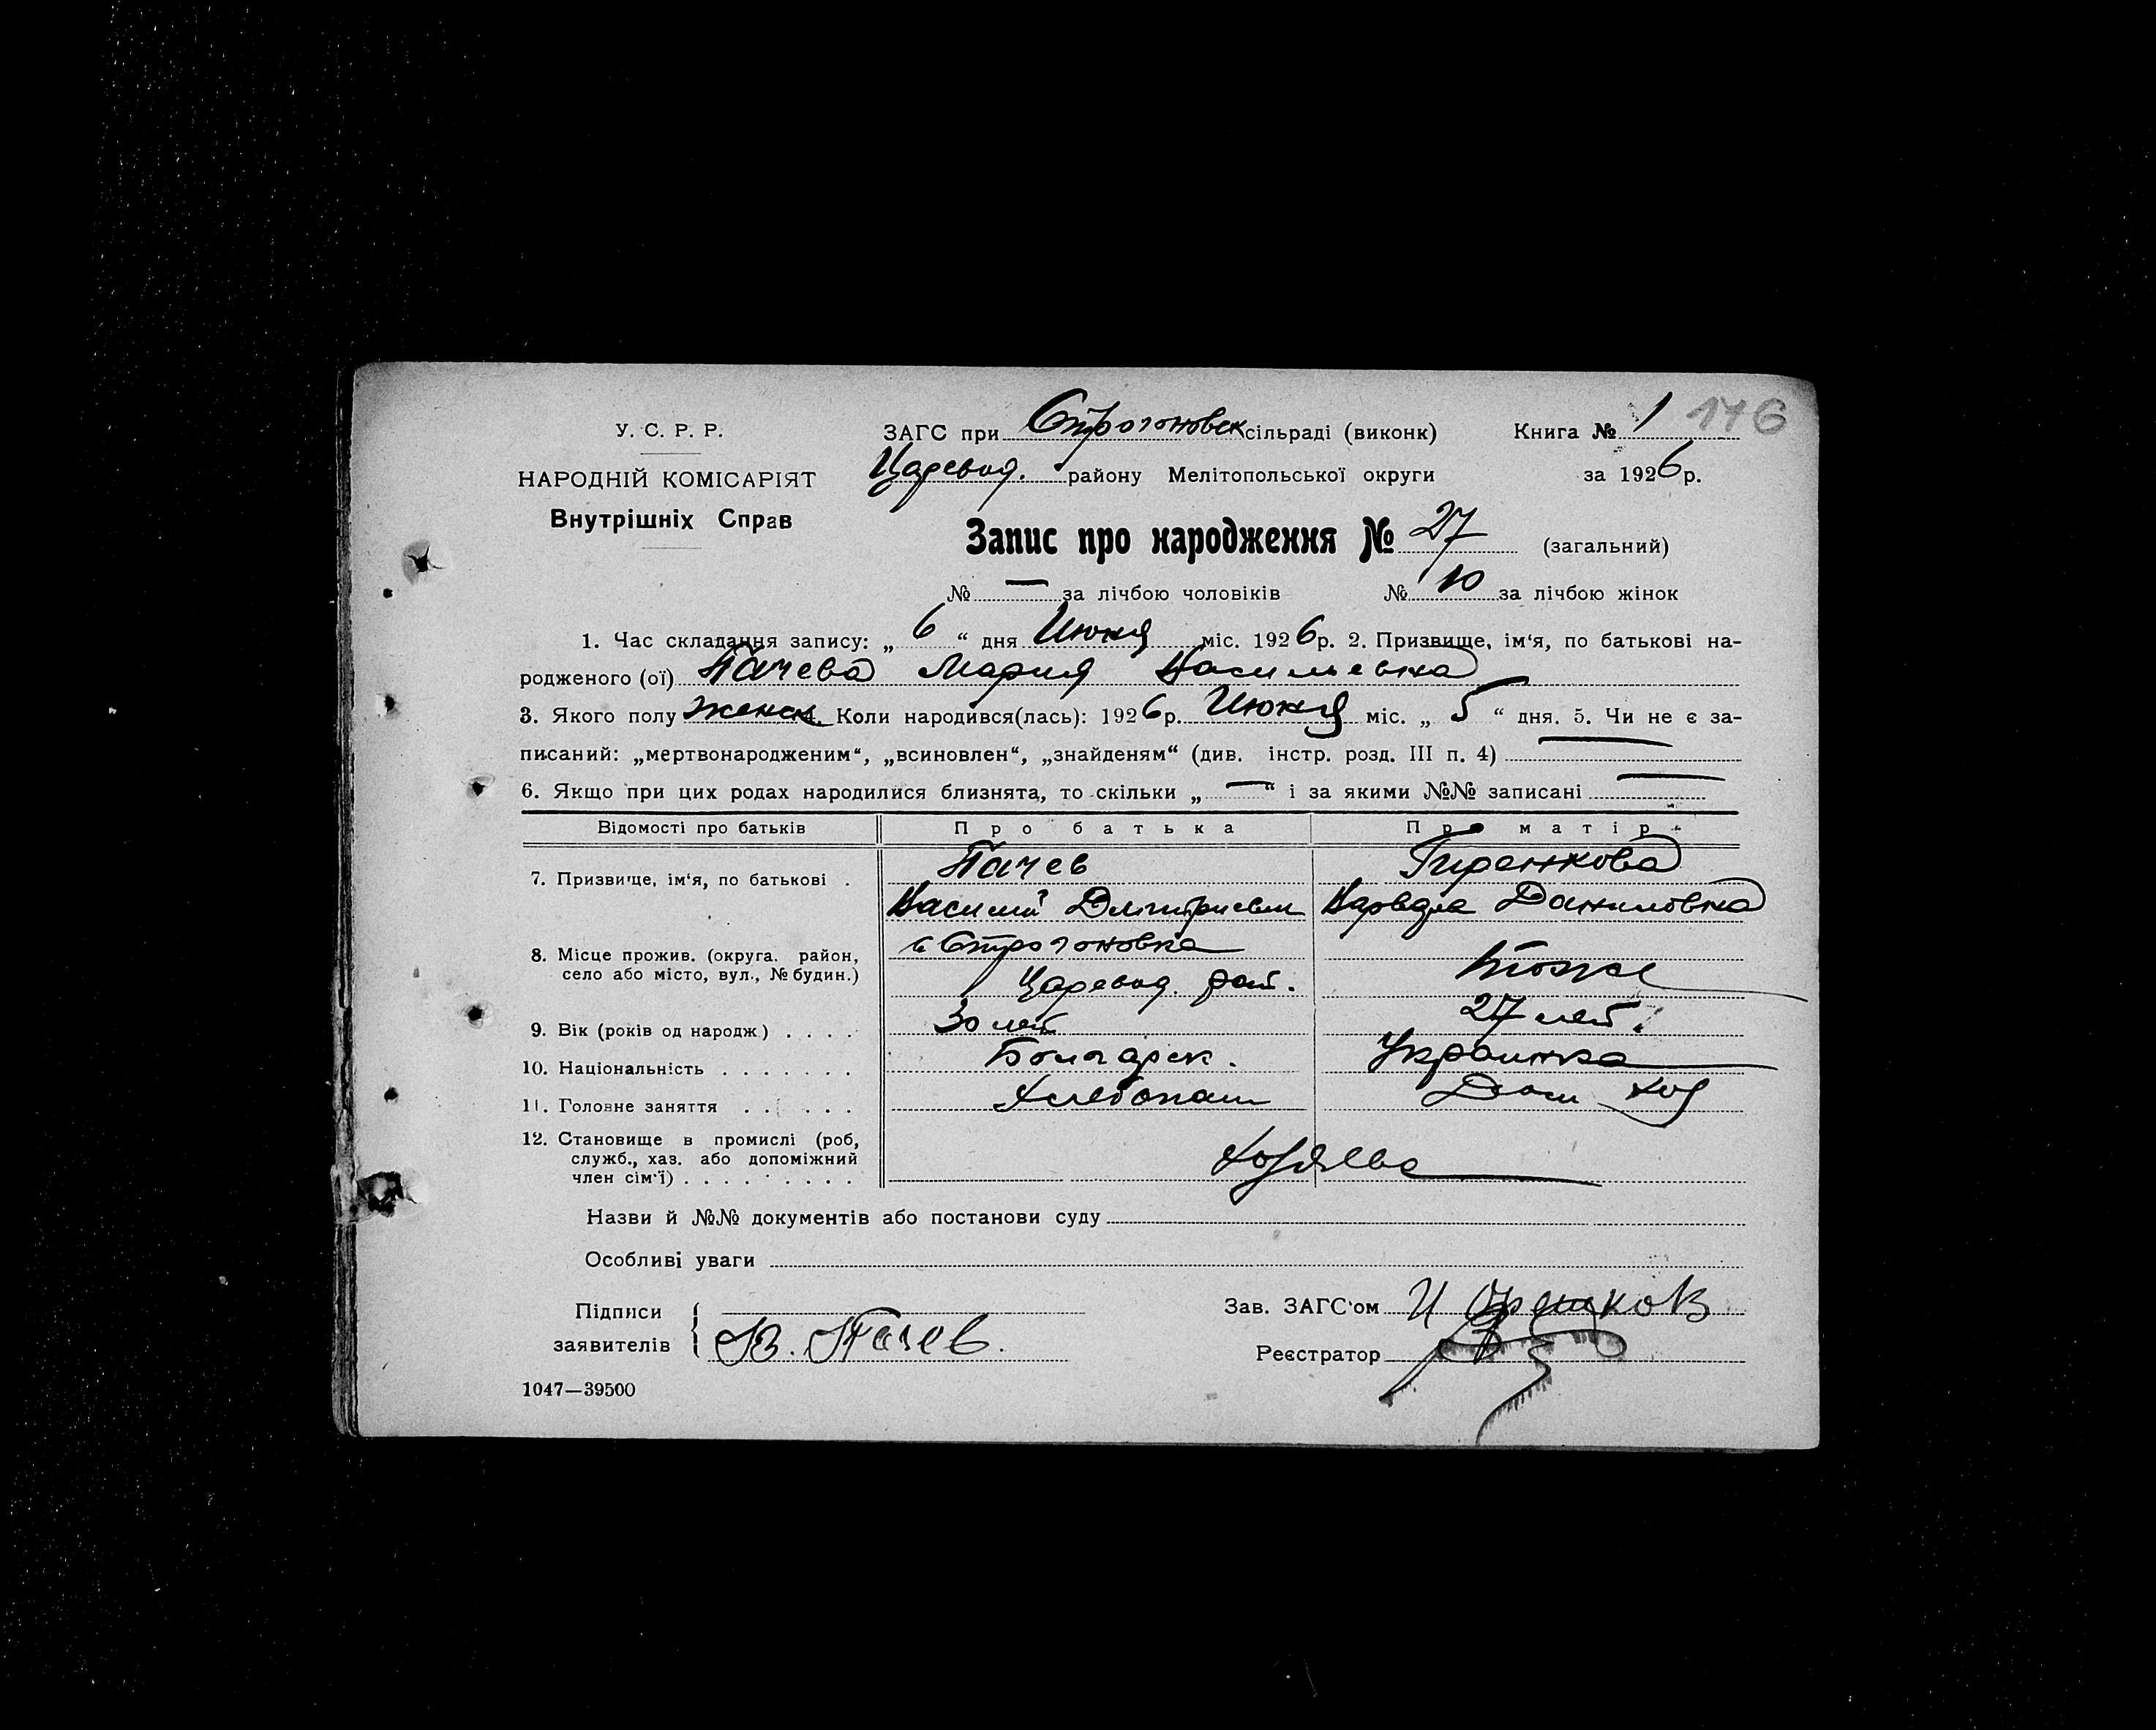 176
У. С. Р. Р.
НАРОДНІЙ КОМІСАРІЯТ
Внутрішніх Справ
ЗАГС при Строгоновск сільраді (виконк) Книга № 1
Царевод. району Мелітопольської округи за 1926 р.
Запис про народження № 27 (загальний)
№ — за лічбою чоловіків № 10 за лічбою жінок
1. Час складання запису: „ 6 “ дня Июня міс. 1926 р. 2. Призвище, ім‘я, по батькові на-
родженого (ої) Пачева Мария Васильевна
3. Якого полу женск. Коли народився(лась): 1926 р. Июня міс. „ 5 “ дня. 5. Чи не є за-
писаний: „мертвонародженим“, „всиновлен“, „знайденям“ (див. інстр. розд. III п. 4) —
6. Якщо при цих родах народилися близнята, то скільки „ — “ і за якими №№ записані —
Відомості про батьків Про батька Про матір
7. Призвище, ім‘я, по батькові . Пачев Гиренкова
Василий Дмитриевич Варвара Даниловна
8. Місце прожив. (округа. район,
село або місто, вул., № будин.)
с Строгоновка
Царевод. рай. тоже
9. Вік (років од народж) . . . . 30 лет 27 лет.
10. Національність . . . . . . . Болгарск. Украинка
11. Головне заняття . . . . . . Хлебопаш Дом хоз
12. Становище в промислі (роб,
служб., хаз. або допоміжний
член сім‘ї) . . . . . . . . .
Хозяева
Назви й №№ документів або постанови суду
Особливі уваги
Підписи
заявителів { В. Пачев.
Зав. ЗАГС‘ом И
Реєстратор
1047—39500